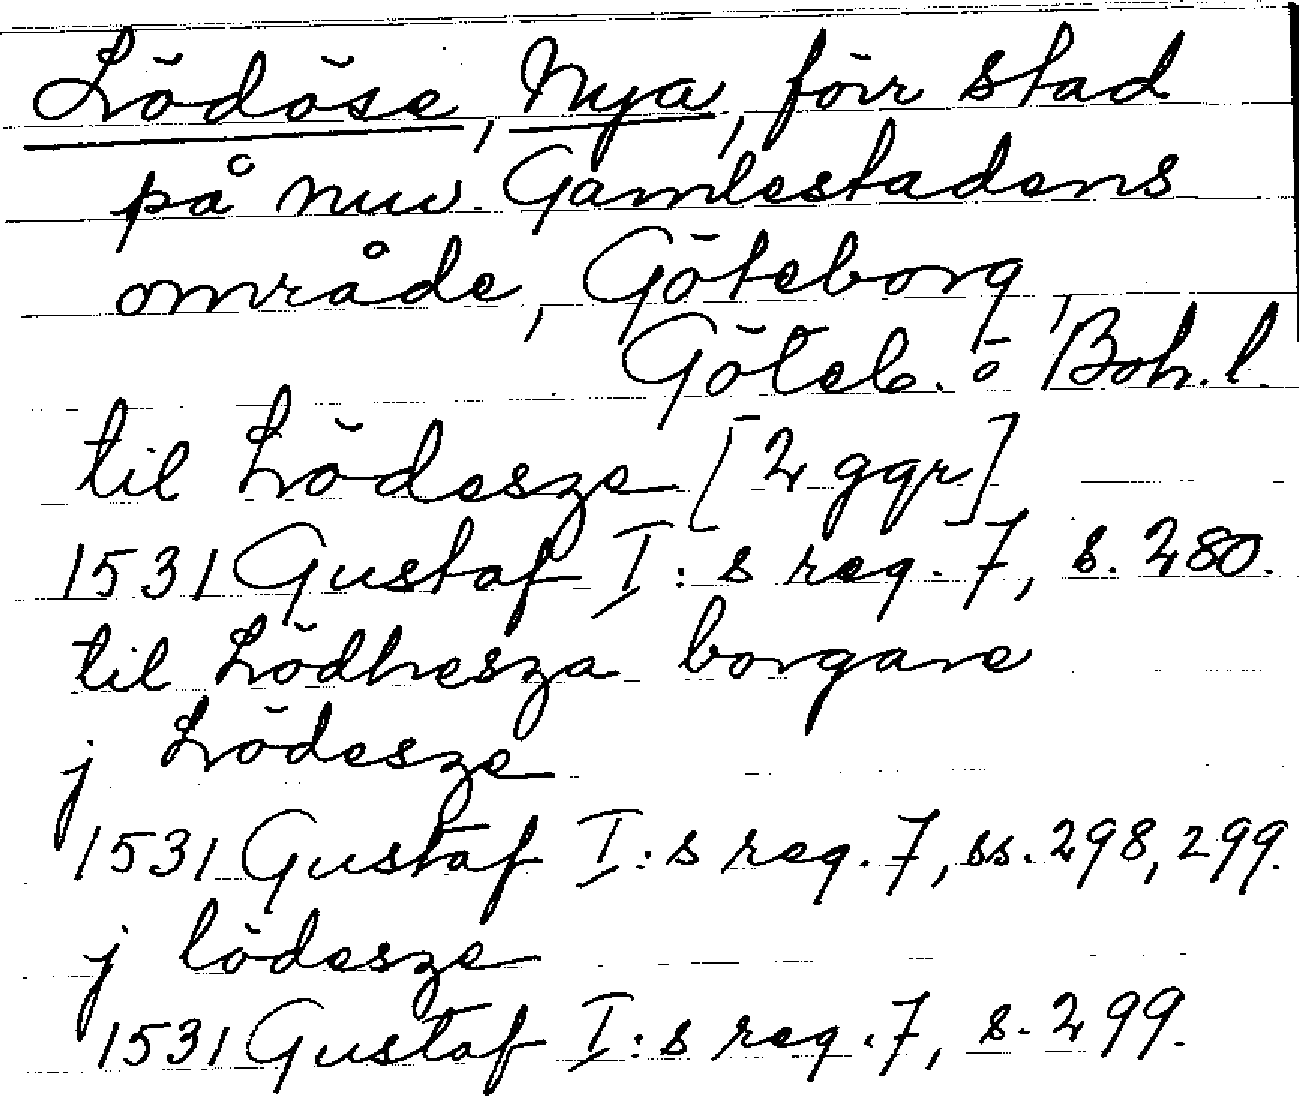 Lödöse, Nya, förr stad
på nuv. Gamlestadens
område, Göteborg,
Göteb. o Boh. l.
til Lödesze [2 ggr]
1531 Gustaf I:s reg. 7, s. 280.
til Lödhesza borgare
j Lödesze
1531 Gustaf I:s reg. 7, ss. 298, 299.
j lödesze
1531 Gustaf I:s reg. 7, s. 299.